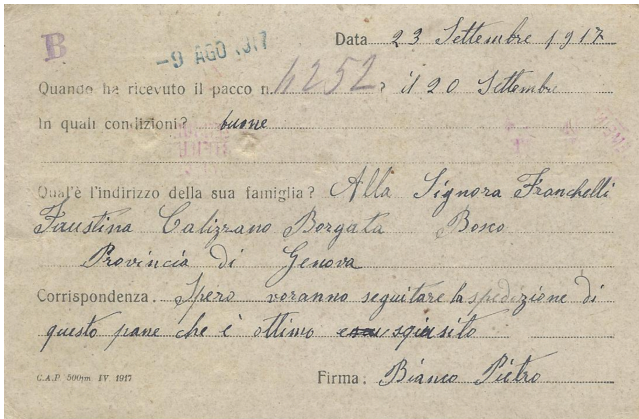 B
-9 AGO 1917
Data 23 Settembre 1917
Quando ha ricevuto il pacco n. 4252? il 20 Settembre
In quali condizioni? buone
Qual'è l'indirizzo della sua famiglia? Alla Signora Franchelli
Faustina Calizzano Borgata Bosco
Provincia di Genova
Corrispondenza. Spero voranno seguitare la spedizione di
questo pane che è ottimo squisito
C.A.P. 500m IV 1917
Firma: Bianco Pietro